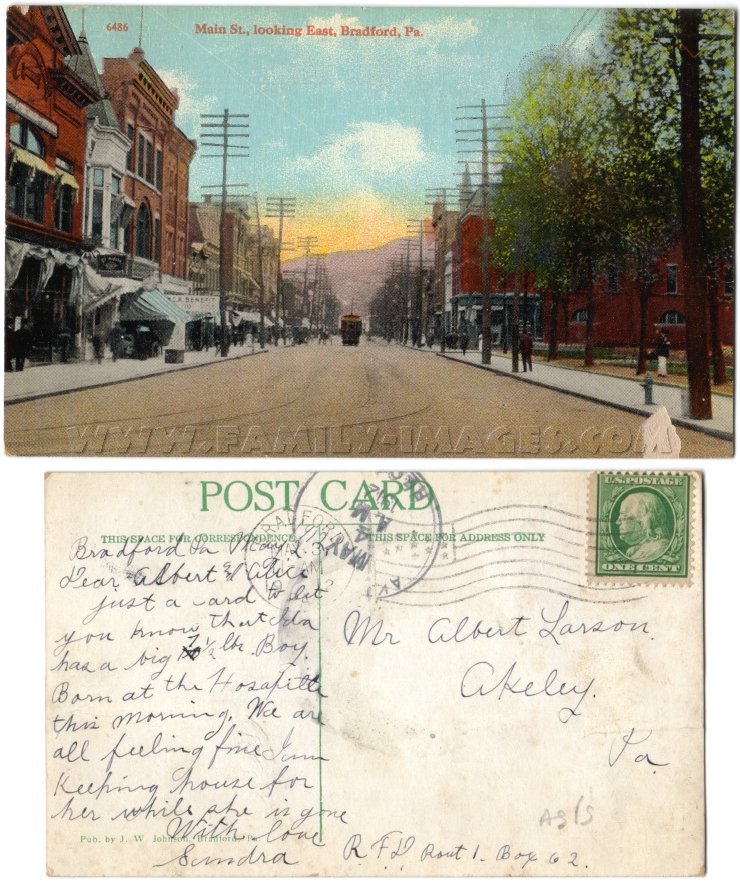 6486
Main St., looking East, Bradford, Pa.
WWW.FAMILY-IMAGES.COM
POST CARD
THIS SPACE FOR CORRESPONDENCE
THIS SPACE FOR ADDRESS ONLY
U.S. POSTAGE
ONE CENT
Bradford Pa May 2.
Dear Albert & Alice
just a card to let
you know that Ida
has a big 7 1/2 lb. Boy.
Born at the Hosapitle
this morning. We are
all feeling fine I am
Keeping house for
her while she is gone
With love
Sendra
Pub. by J. W. Johnson, Bradford, Pa.
Mr Albert Larson.
Akeley.
Pa
R.F.D. Rout 1. Box 62.